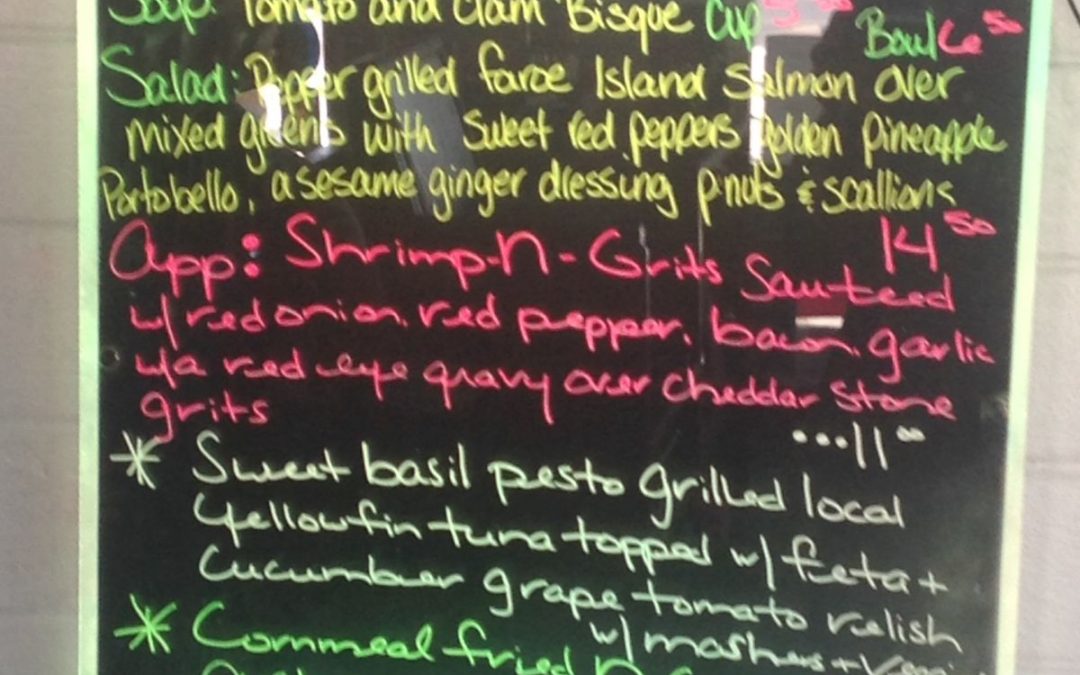 Soup: Tomato and Clam Bisque Cup 5 Bowl 6 50
Salad: Pepper grilled faroe Island Salmon over
mixed greens with sweet red peppers golden pineapple
Portobello, a sesame ginger dressing pnuts & scallions
14 50
App: Shrimp-N-Grits Sauteed
w/ red onion, red pepper, bacon, garlic
w/a red eye gravy over cheddar stone
grits ...11 00
* Sweet basil pesto grilled local
Yellowfin tuna topped w/ feta +
Cucumber grape tomato relish
w/ mashers +
* Cornmeal fried